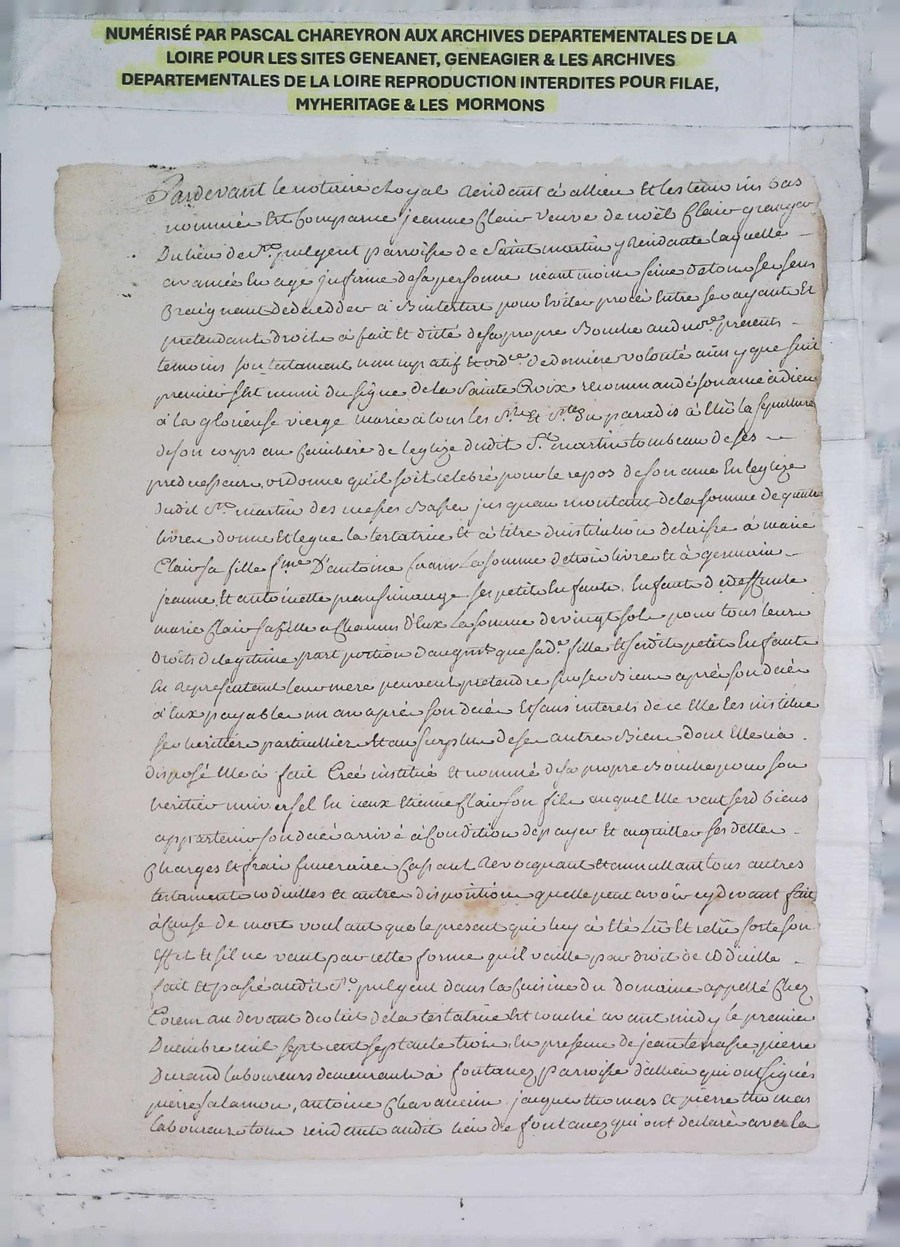 NUMÉRISÉ PAR PASCAL CHAREYRON AUX ARCHIVES DEPARTEMENTALES DE LA
LOIRE POUR LES SITES GENEANET, GENEAGIER & LES ARCHIVES
DEPARTEMENTALES DE LA LOIRE REPRODUCTION INTERDITES POUR FILAE,
MYHERITAGE & LES MORMONS
Pardevant le notaire Royal Residant à allieu Et les temoins bas
nommés Est Comparue jeanne Clair veuve de noël Clair granger
Du lieu de St pulgent parroisse de Saint martin y Residante laquelle
avancée En age infirme de sa personne neant moin seine de tous ses sens
Craignant de decedder à Bintestat pour Eviter procès Entre ses ayants Et
pretendant droits à fait Et dicté de sa propre Bouche audit nore presents
temoins son testament nunnupatif Et ordre de derniere volonté ainsy que suit
premier s'Est muni du signe de la Sainte Croix recommandé son ame à dieu
à la glorieuse vierge marie à tous les Sts Et Stes du paradis à Elû la sepulture
de son corps au Cimitiere de leglize dudit St martin tombeau de ses
predecesseurs, ordonne qu'il soit celebré pour le repos de son ame En leglize
dudit St martin des messes Basses jusquau montant de la somme de quinze
livres donne Et legue la testatrice Et à titre dinstitution delaisse à marie
Clair sa fille fme D'antoine la somme de trois livres Et à germain
jeanne Et antoinette ses petits Enfants, Enfants de deffunte
marie Clair sa fille a Chacuns d'Eux la somme de vingt sols pour tous leurs
Droits de legitime part portion d'augmt que sa de fille Et sesdits petits Enfants
En representant leur mere peuvent pretendre sur ses Biens après son decès
à Eux payable un an après son decès Et sans interets de ce Elle les institue
ses heritiers particulliers Et au surplus de ses autres Biens dont Elle n'a
disposé Elle à fait Créé institué Et nommé de sa propre Bouche pour son
heritier universel En iceux Etienne Clair son fils auquel Elle veut sesd Biens
appartenir son decès arrivé à Condition de payer Et acquitter ses dettes
Charges Et frais funeraires Cassant Revocquant Et annullant tous autres
testaments codicilles Et autres dispositions quelle peut avoir cydevant fait
à Cause de mort voulant que le present qui luy à Eté Lû Et relû sorte son
Effet Et s'il ne vaut par cette forme qu'il vaille par droit de Codicille
fait Et passé audit St pulgent dans la Cuisine du domaine appellé Chez
au devant du lit de la testatrice Est couché avant midy le premier
Decembre mil sept cent septante trois, En presence de jean terrasse, pierre
Durand laboureurs demeurants à fontanez parroisse d'allieu qui ont signés
pierre salamon, antoine Chavancin jacque thomas Et pierre thomas
laboureurs tous residants audit lieu de fontanez qui ont declaré avec la